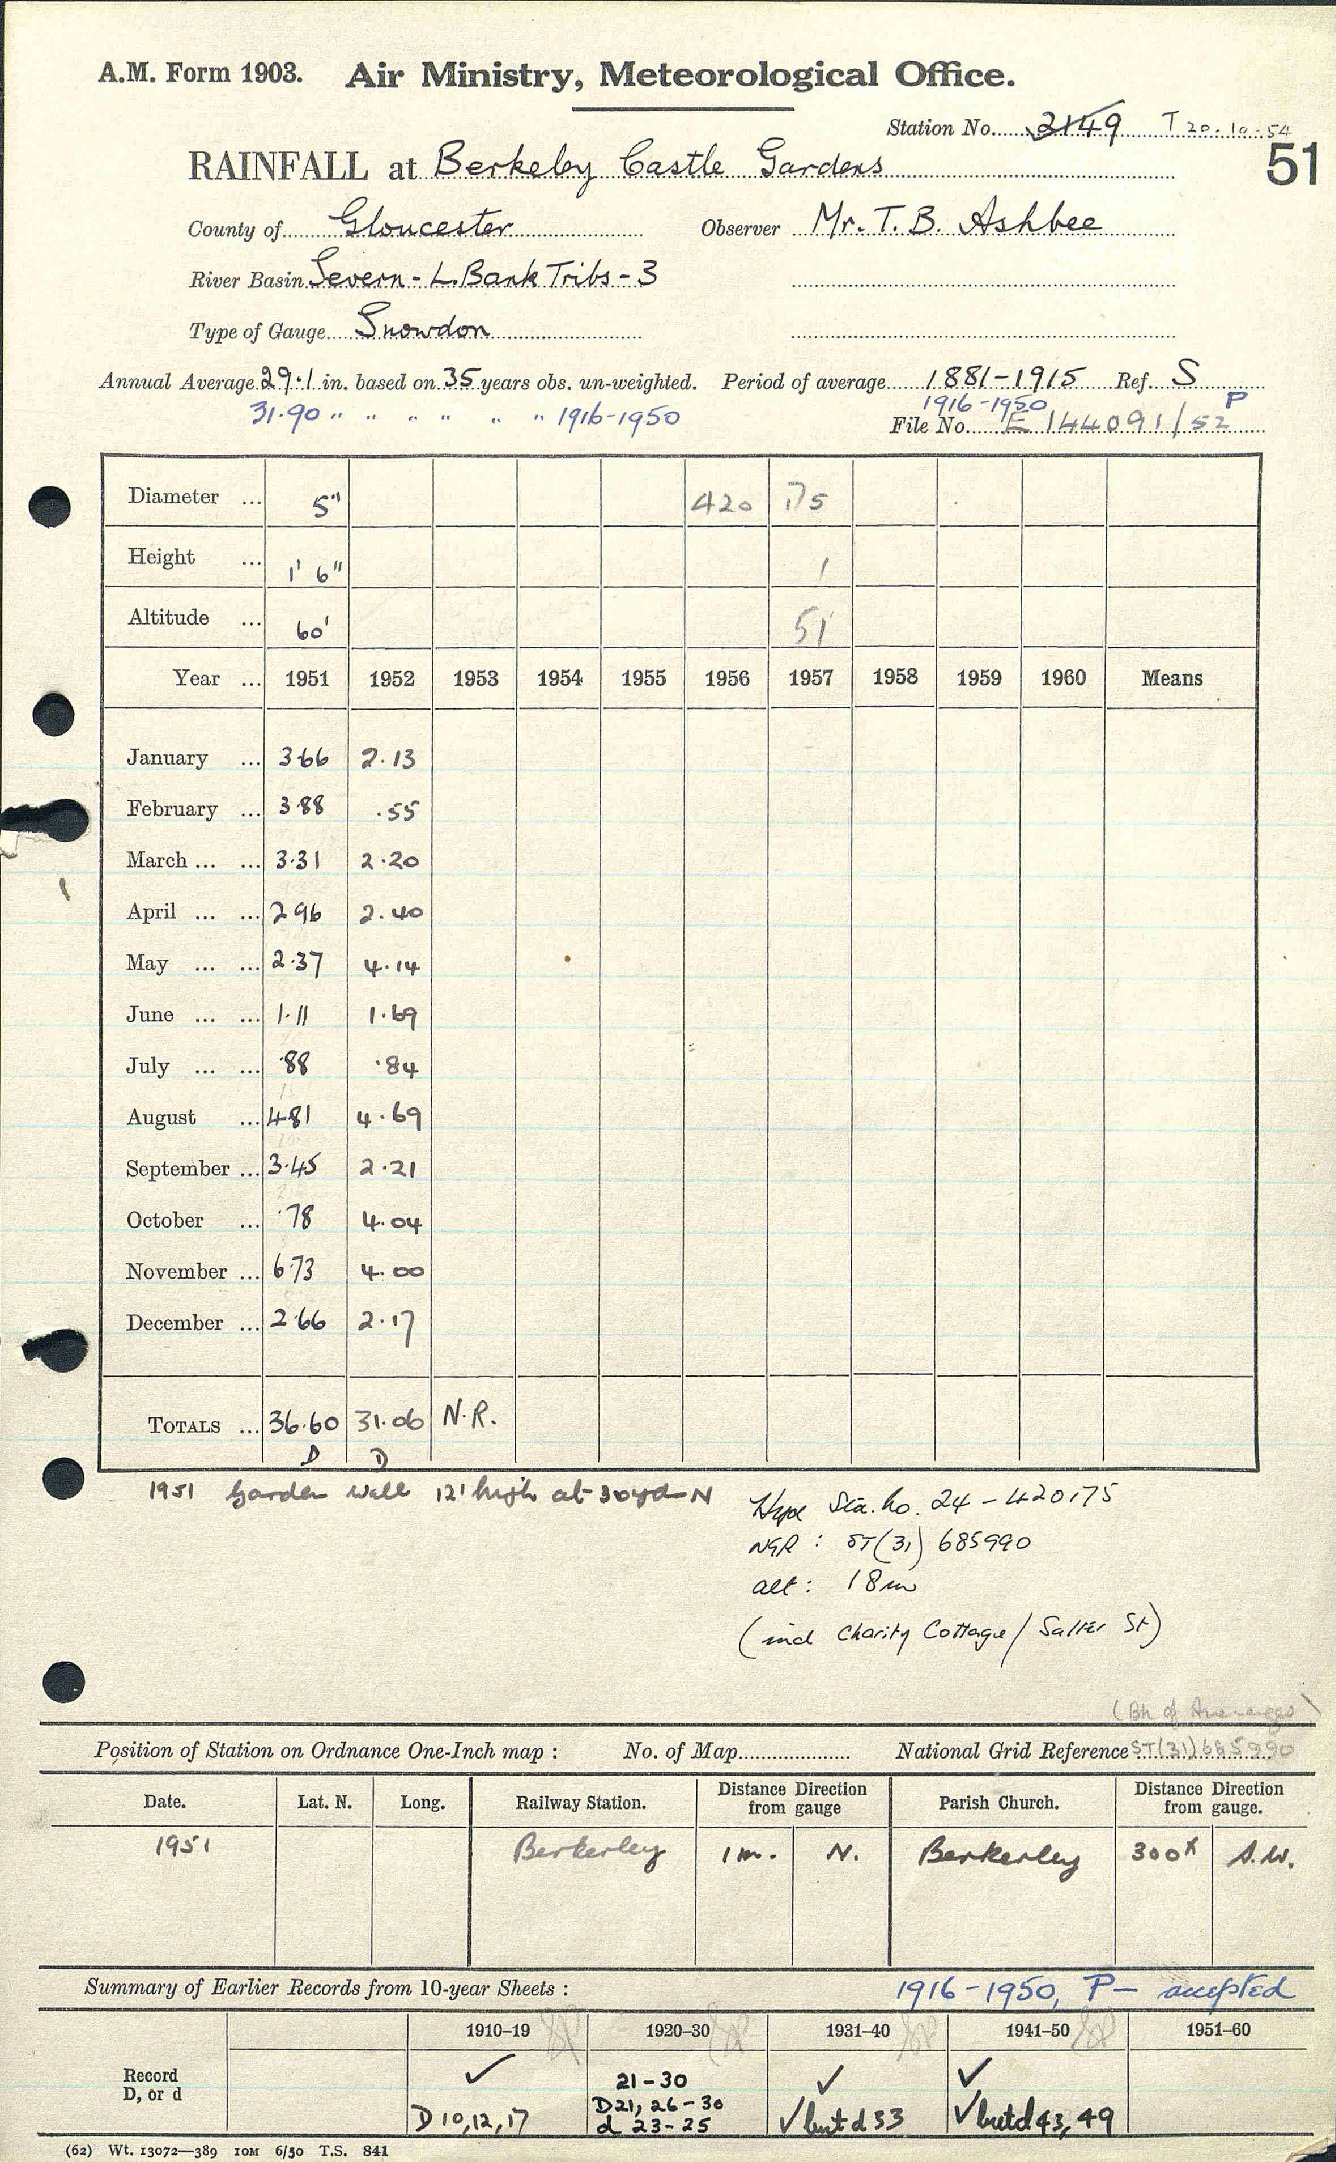 A.M. Form 1903. Air Ministry, Meteorological Office.
Station No. 2149 T 20.10.54
51
RAINFALL at Berkeley Castle Gardens
County of Gloucester Observer Mr. T. B. Ashbee
River Basin Severn - L. Bank Tribs - 3
Type of Gauge Snowdon
Annual Average 29.1 in. based on 35 years obs. un-weighted. Period of average 1881-1915 Ref. S
31.90 " " " " " " 1916-1950 1916-1950 P
File No. E 144091/52
Diameter ... 5" 420 175
Height ... 1' 6" 1
Altitude ... 60' 51
Year ... 1951 1952 1953 1954 1955 1956 1957 1958 1959 1960 Means
January ... 3.66 2.13
February ... 3.88 .55
March ... ... 3.31 2.20
April ... ... 2.96 2.40
May ... ... 2.37 4.14
June ... ... 1.11 1.69
July ... ... .88 .84
August ... 4.81 4.69
September ... 3.45 2.21
October ... .78 4.04
November ... 6.73 4.00
December ... 2.66 2.17
TOTALS ... 36.60 31.06 N.R.
D D
1951 Garden wall 12' high at 30yd N
Sta. no. 24 - 420175
NGR : ST(31) 685990
alt : 18m
(incl Charity Cottage / Salter St)
(Bk of Averages)
Position of Station on Ordnance One-Inch map : No. of Map National Grid Reference ST(31)685990
Date. Lat. N. Long. Railway Station. Distance Direction from gauge Parish Church. Distance Direction from gauge.
1951 Berkerley 1 m. N. Berkerley 300x S.W.
Summary of Earlier Records from 10-year Sheets : 1916-1950, P - accepted
1910-19 1920-30 1931-40 1941-50 1951-60
Record D, or d
✓ 21-30 ✓ ✓
D 10,12,17 D21, 26-30 ✓ but d 33 ✓ but d 43, 49
d 23-25
(62) Wt. 13072—389 10M 6/50 T.S. 841